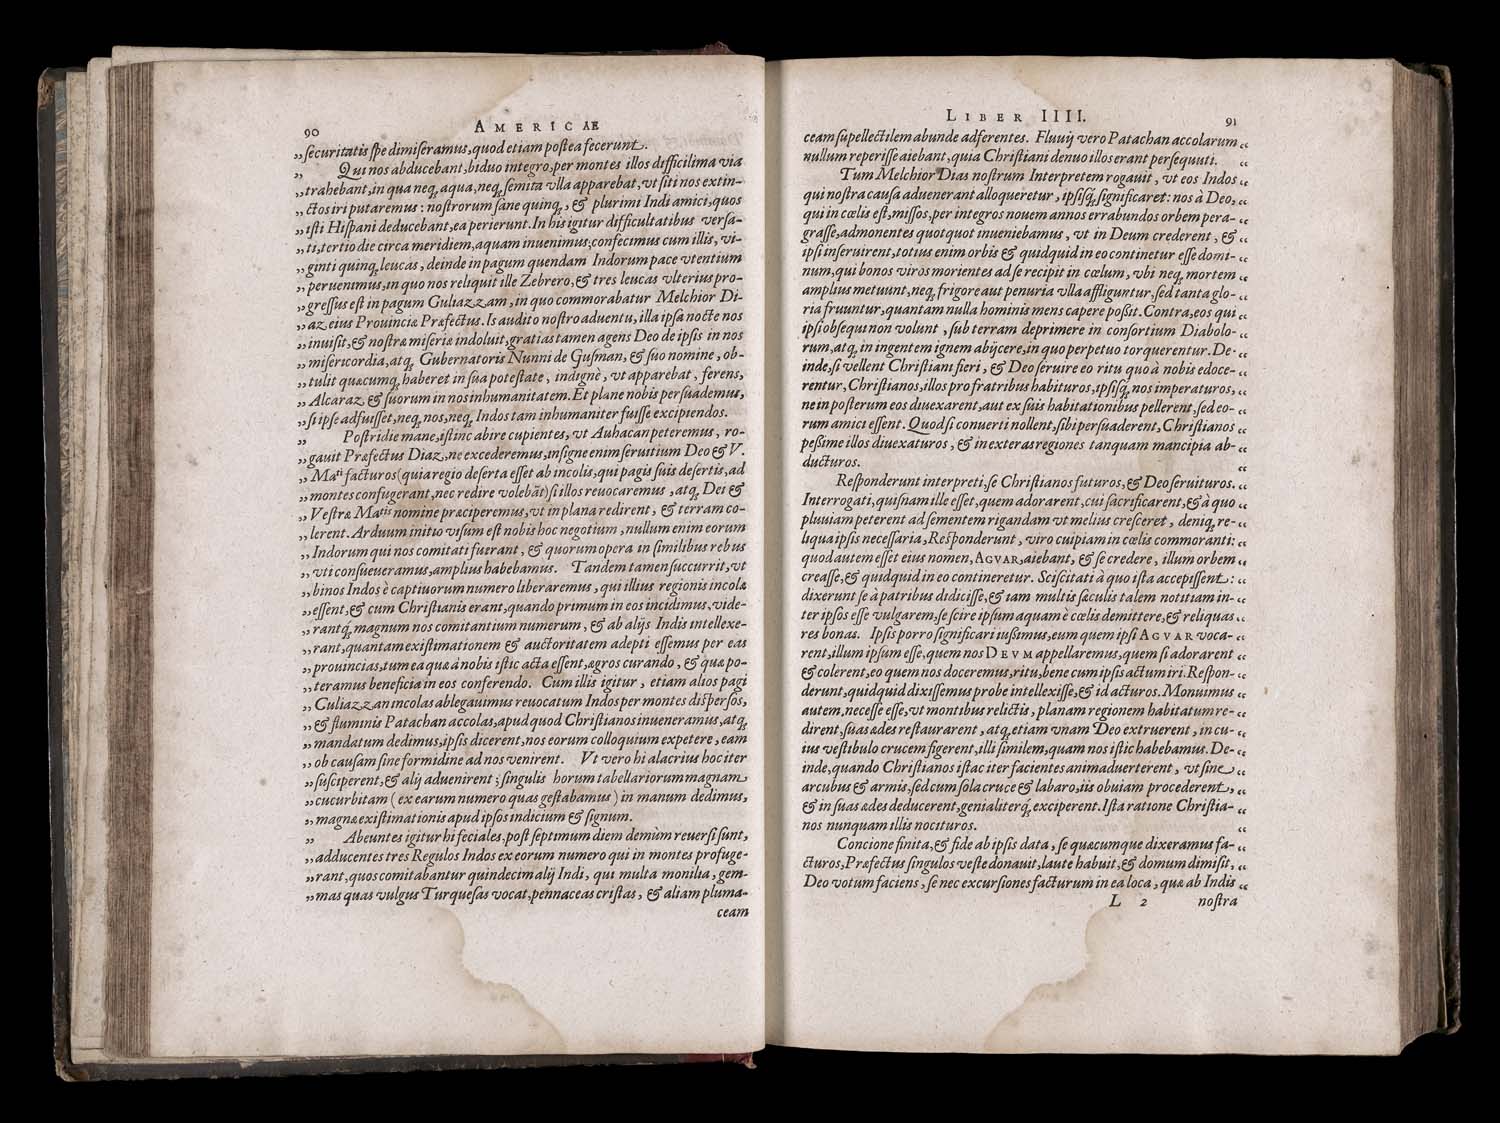 90 AMERICÆ
„ ſecuritatis ſpe dimiſeramus, quod etiam poſtea fecerunt.
„ Qui nos abducebant, biduo integro, per montes illos difficilima via
„ trahebant, in qua neq, aqua, neq, ſemita vlla apparebat, vt ſiti nos extin-
„ ctos iri putaremus: noſtrorum ſane quinq, & plurimi Indi amici, quos
„ iſti Hiſpani deducebant, ea perierunt. In his igitur difficultatibus verſa-
„ ti, tertio die circa meridiem, aquam inuenimus, confecimus cum illis, vi-
„ ginti quinq leucas, deinde in pagum quendam Indorum pace vtentium
„ peruenimus, in quo nos reliquit ille Zebrero, & tres leucas vlterius pro-
„ greſſus eſt in pagum Guliazzam, in quo commorabatur Melchior Di-
„ az eius Prouinciæ Præfectus. Is audito noſtro aduentu, illa ipſa nocte nos
„ inuiſit, & noſtræ miſeriæ indoluit, gratias tamen agens Deo de ipſis in nos
„ miſericordia, atq, Gubernatoris Nunni de Guſman, & ſuo nomine, ob-
„ tulit quæcumq, haberet in ſua poteſtate, indignè, vt apparebat, ferens,
„ Alcaraz & ſuorum in nos inhumanitatem. Et plane nobis perſuademus,
„ ſi ipſe adfuiſſet, neq, nos, neq, Indos tam inhumaniter fuiſſe excipiendos.
„ Poſtridie mane, iſtinc abire cupientes, vt Auhacan peteremus, ro-
„ gauit Præfectus Diaz, ne excederemus, inſigne enim ſeruitium Deo & V.
„ Maᵗⁱ facturos (quia regio deſerta eſſet ab incolis, qui pagis ſuis deſertis, ad
„ montes confugerant, nec redire volebāt) ſi illos reuocaremus, atq, Dei &
„ Veſtræ Maᵗⁱˢ nomine præciperemus, vt in plana redirent, & terram co-
„ lerent. Arduum initio viſum eſt nobis hoc negotium, nullum enim eorum
„ Indorum qui nos comitati fuerant, & quorum opera in ſimilibus rebus
„ vti conſueueramus, amplius habebamus. Tandem tamen ſuccurrit, vt
„ binos Indos è captiuorum numero liberaremus, qui illius regionis incolæ
„ eſſent, & cum Chriſtianis erant, quando primum in eos incidimus, vide-
„ rantq, magnum nos comitantium numerum, & ab alijs Indis intellexe-
„ rant, quantam exiſtimationem & auctoritatem adepti eſſemus per eas
„ prouincias, tum ea quæ à nobis iſtic acta eſſent, ægros curando, & quæ po-
„ teramus beneficia in eos conferendo. Cum illis igitur, etiam alios pagi
„ Culiazzan incolas ablegauimus reuocatum Indos per montes diſperſos,
„ & fluminis Patachan accolas, apud quod Chriſtianos inueneramus, atq,
„ mandatum dedimus, ipſis dicerent, nos eorum colloquium expetere, eam
„ ob cauſam ſine formidine ad nos venirent. Vt vero hi alacrius hoc iter
„ ſuſciperent, & alij aduenirent; ſingulis horum tabellariorum magnam
„ cucurbitam (ex earum numero quas geſtabamus) in manum dedimus,
„ magnæ exiſtimationis apud ipſos indicium & ſignum.
„ Abeuntes igitur hi feciales, poſt ſeptimum diem demùm reuerſi ſunt,
„ adducentes tres Regulos Indos ex eorum numero qui in montes profuge-
„ rant, quos comitabantur quindecim alij Indi, qui multa monilia, gem-
„ mas quas vulgus Turqueſas vocat, pennaceas criſtas, & aliam pluma-
ceam
LIBER IIII. 91
ceam ſupellectilem abunde adferentes. Fluuij vero Patachan accolarum „
nullum reperiſſe aiebant, quia Chriſtiani denuo illos erant perſequuti. „
Tum Melchior Dias noſtrum Interpretem rogauit, vt eos Indos „
qui noſtra cauſa aduenerant alloqueretur, ipſisq, ſignificaret: nos à Deo, „
qui in cœlis eſt, miſſos, per integros nouem annos errabundos orbem pera- „
graſſe, admonentes quotquot inueniebamus, vt in Deum crederent, & „
ipſi inſeruirent, totius enim orbis & quidquid in eo continetur eſſe domi- „
num, qui bonos viros morientes ad ſe recipit in cœlum, vbi neq, mortem „
amplius metuunt, neq, frigore aut penuria vlla affliguntur, ſed tanta glo- „
ria fruuntur, quantam nulla hominis mens capere poſſit. Contra, eos qui „
ipſi obſequi non volunt, ſub terram deprimere in conſortium Diabolo- „
rum, atq, in ingentem ignem abijcere, in quo perpetuo torquerentur. De- „
inde, ſi vellent Chriſtiani fieri, & Deo ſeruire eo ritu quo à nobis edoce- „
rentur, Chriſtianos, illos pro fratribus habituros, ipſisq, nos imperaturos, „
ne in poſterum eos diuexarent, aut ex ſuis habitationibus pellerent, ſed eo- „
rum amici eſſent. Quod ſi conuerti nollent, ſibi perſuaderent, Chriſtianos „
peſſime illos diuexaturos, & in exteras regiones tanquam mancipia ab- „
ducturos. „
Reſponderunt interpreti, ſe Chriſtianos futuros, & Deo ſeruituros. „
Interrogati, quiſnam ille eſſet, quem adorarent, cui ſacrificarent, & à quo „
pluuiam peterent ad ſementem rigandam vt melius creſceret, deniq, re- „
liqua ipſis neceſſaria, Reſponderunt, viro cuipiam in cœlis commoranti: „
quod autem eſſet eius nomen, AGVAR, aiebant, & ſe credere, illum orbem „
creaſſe, & quidquid in eo contineretur. Sciſcitati à quo iſta accepiſſent: „
dixerunt ſe à patribus didiciſſe, & iam multis ſæculis talem notitiam in- „
ter ipſos eſſe vulgarem, ſe ſcire ipſum aquam è cœlis demittere, & reliquas „
res bonas. Ipſis porro ſignificari iuſsimus, eum quem ipſi AGVAR voca- „
rent, illum ipſum eſſe, quem nos DEVM appellaremus, quem ſi adorarent „
& colerent, eo quem nos doceremus, ritu, bene cum ipſis actum iri. Reſpon- „
derunt, quidquid dixiſſemus probe intellexiſſe, & id acturos. Monuimus „
autem, neceſſe eſſe, vt montibus relictis, planam regionem habitatum re- „
dirent, ſuas ædes reſtaurarent, atq, etiam vnam Deo extruerent, in cu- „
ius veſtibulo crucem figerent, illi ſimilem, quam nos iſtic habebamus. De- „
inde, quando Chriſtianos iſtac iter facientes animaduerterent, vt ſine „
arcubus & armis, ſed cum ſola cruce & labaro, iis obuiam procederent, „
& in ſuas ædes deducerent, genialiterq, exciperent. Iſta ratione Chriſtia- „
nos nunquam illis nocituros. „
Concione finita, & fide ab ipſis data, ſe quæcumque dixeramus fa- „
cturos, Præfectus ſingulos veſte donauit, laute habuit, & domum dimiſit, „
Deo votum faciens, ſe nec excurſiones facturum in ea loca, quæ ab Indis „
L 2 noſtra